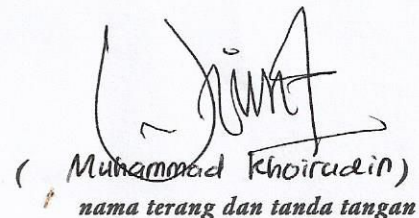 ( Muhammad Khoirudin)
nama terang dan tanda tangan